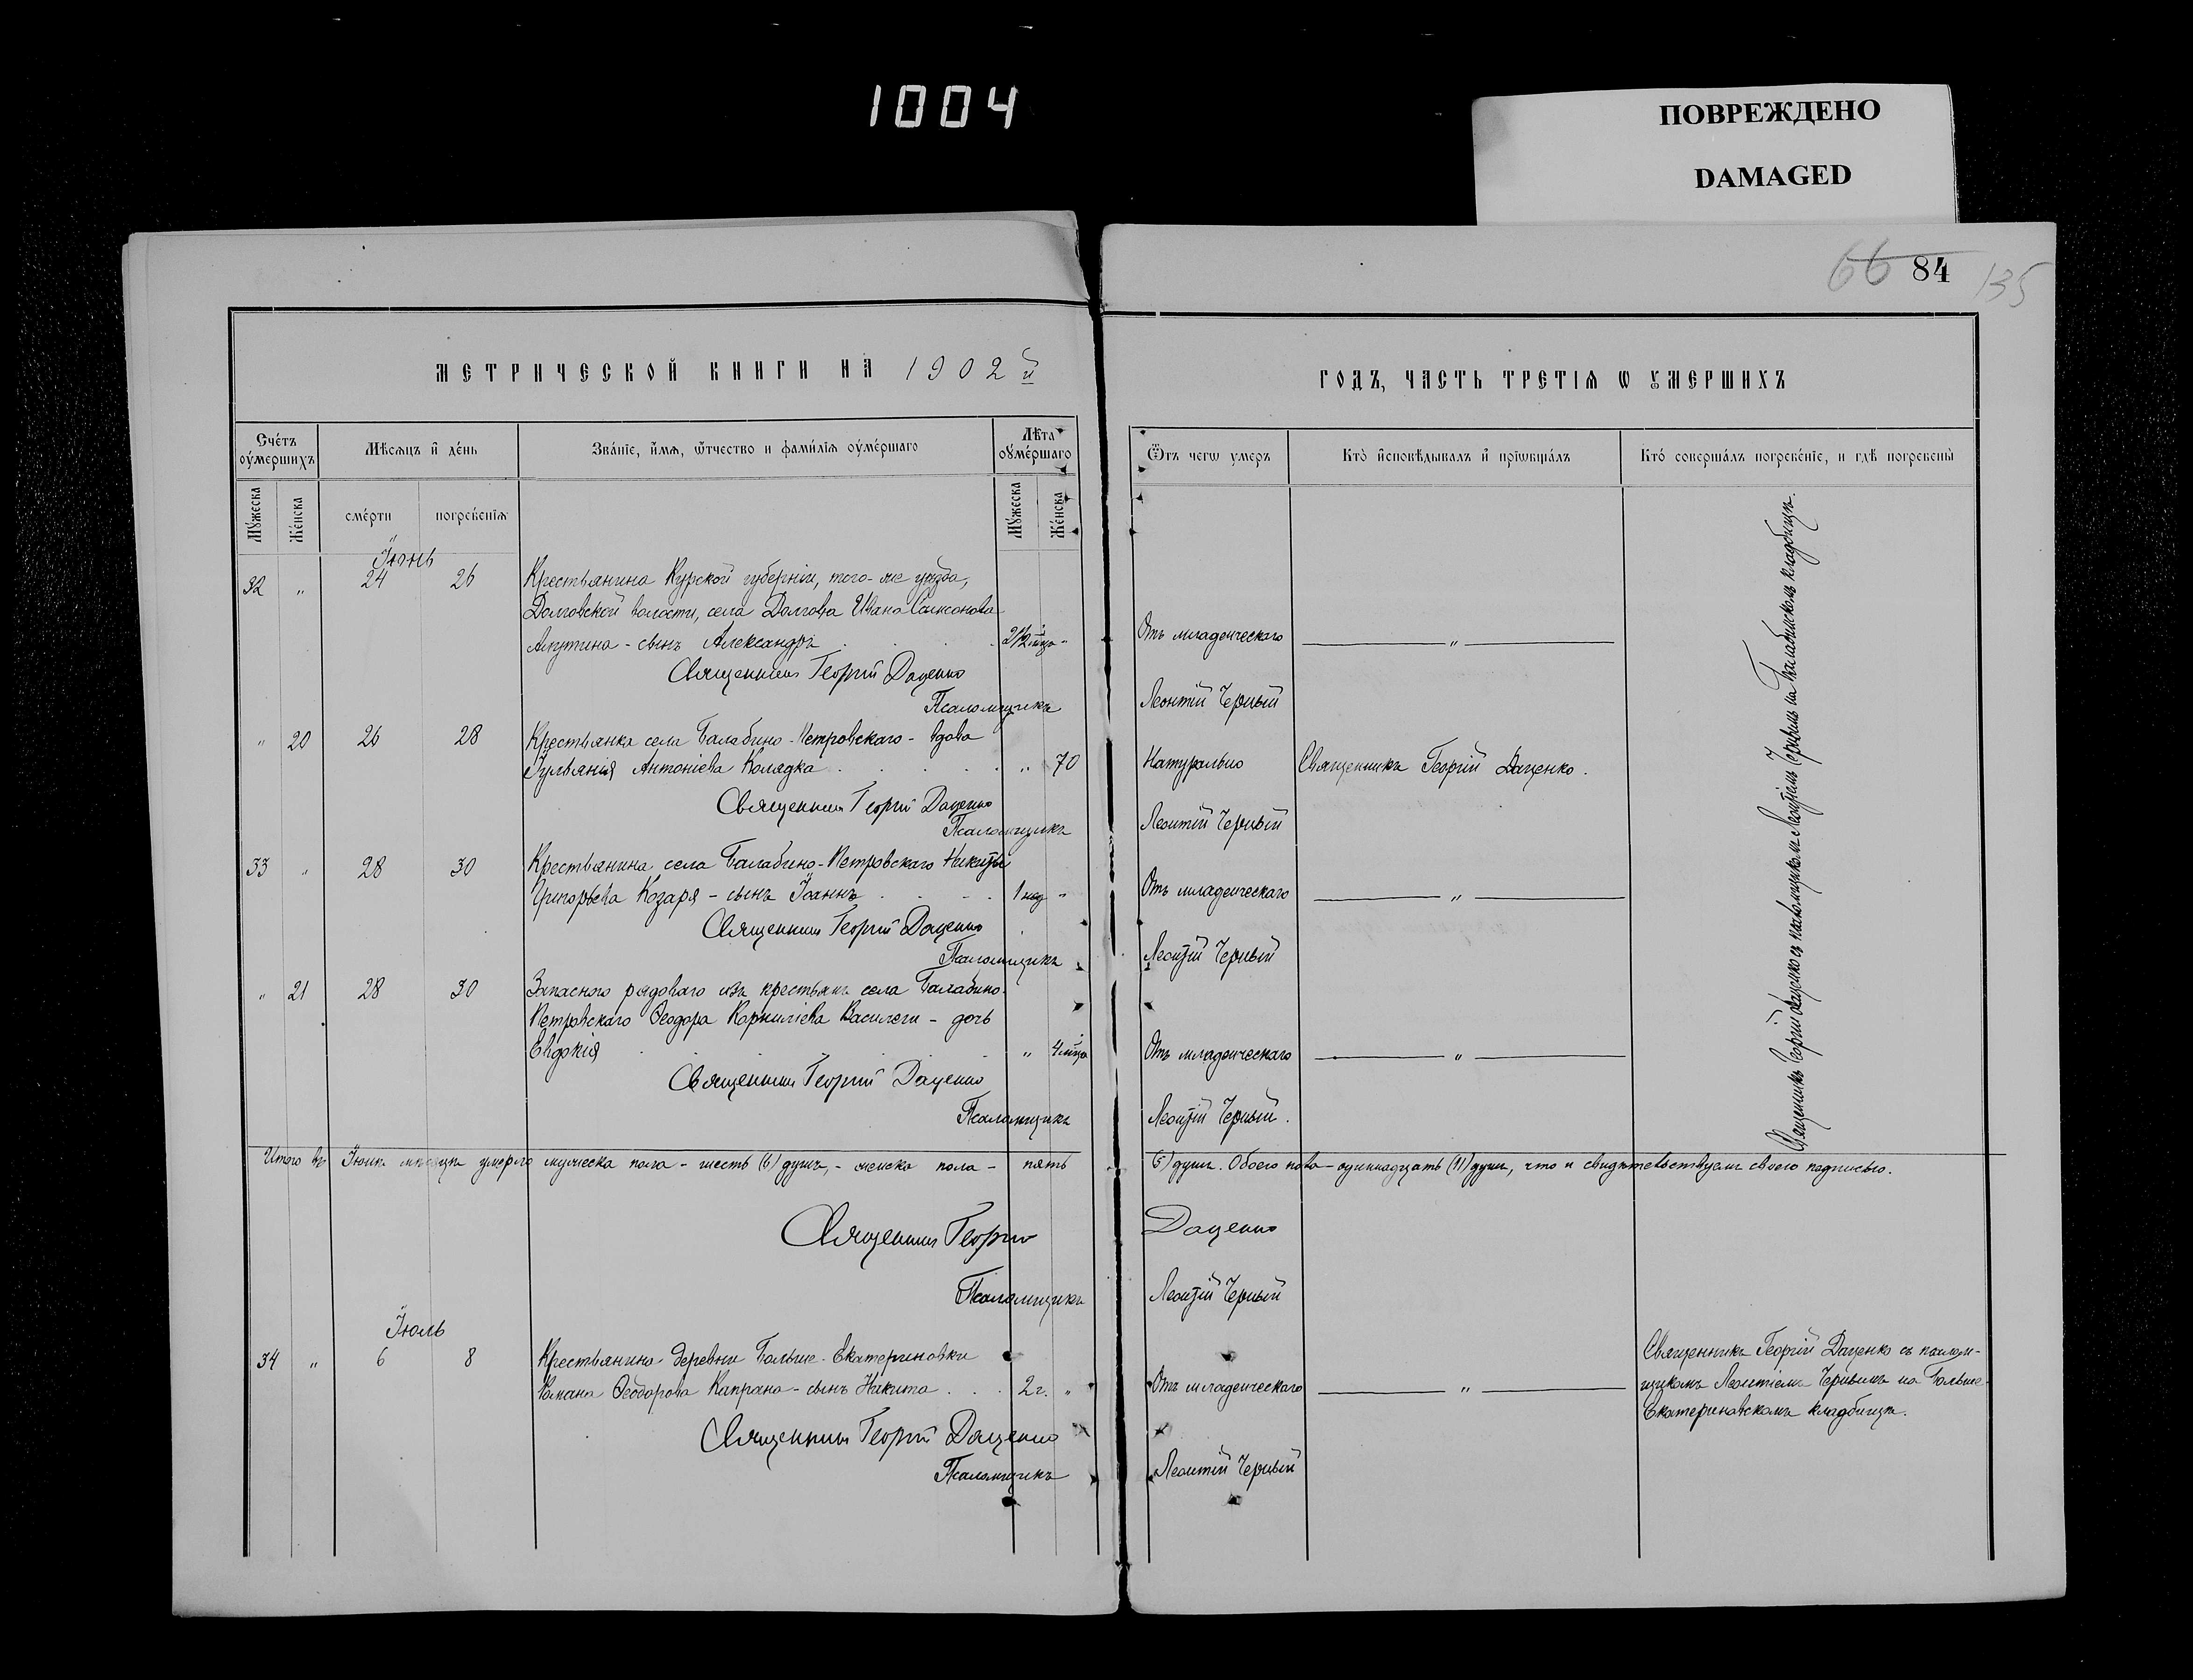 1004
ПОВРЕЖДЕНО
DAMAGED
66 84 135
МЕТРИЧЕСКОЙ КНИГИ НА 1902й
ГОДЪ, ЧАСТЬ ТРЕТІѦ Ѡ ꙊМЕРШИХЪ
Счéтъ оу҆мéршихъ
Мѣсѧцъ и҆ дéнь
Звáніе, и҆мѧ, ѿчество и фамилія оу҆мéршаго
Лѣта оу҆мéршаго
Ѿтъ чегѡ умеръ
Ктò и҆сповѣдывалъ и҆ прїѡбщáлъ
Ктó совершáлъ погребéніе, и гдѣ погребены
Мꙋжеска
Жéнска
смéрти
погребенія
Мꙋжеска
Жéнска
Іюнь
32 " 24 26 Крестьянина Курской губерніи, того-же уѣзда,
Долговской волости, села Долгова Ивана Самсонова
Апутина - сынъ Александръ . . 2 1/2 мца " Отъ младенческаго — " —
Священникъ Георгій Даценко
Псаломщикъ Леонтій Черный
" 20 26 28 Крестьянка села Балабино-Петровскаго - вдова
Гульянія Антоніева Колядка . . . . " 70 Натурально Священникъ Георгій Даценко.
Священникъ Георгій Даценко
Псаломщикъ Леонтій Черный
33 " 28 30 Крестьянина села Балабино-Петровскаго Никиты
Григорьева Козаря - сынъ Іоаннъ . . . 1 нед " Отъ младенческаго — " —
Священникъ Георгій Даценко
Псаломщикъ Леонтій Черный
" 21 28 30 Запасного рядоваго изъ крестьянъ села Балабино-
Петровскаго Ѳеодора Корниліева Василеги - дочь
Евдокія . . . . " 4 мца Отъ младенческаго — " —
Священникъ Георгій Даценко
Псаломщикъ Леонтій Черный.
Священникъ Георгій Даценко съ псаломщикомъ Леонтіемъ Чернымъ на Балабинскомъ кладбищѣ.
Итого въ Іюнѣ мѣсяцѣ умерло мужеска пола - шесть (6) душъ, - женска пола - пять (5) душъ. Обоего пола - одиннадцать (11) душъ, что и свидѣтельствуемъ своею подписью.
Священникъ Георгій Даценко
Псаломщикъ Леонтій Черный
Іюль
34 " 6 8 Крестьянина деревни Больше-Екатериновки
Романа Ѳеодорова Капрана - сынъ Никита . . . 2 г. " Отъ младенческаго — " —
Священникъ Георгій Даценко съ псалом-
щикомъ Леонтіемъ Чернымъ на Больше-
Екатериновскомъ кладбищѣ.
Священникъ Георгій Даценко
Псаломщикъ Леонтій Черный